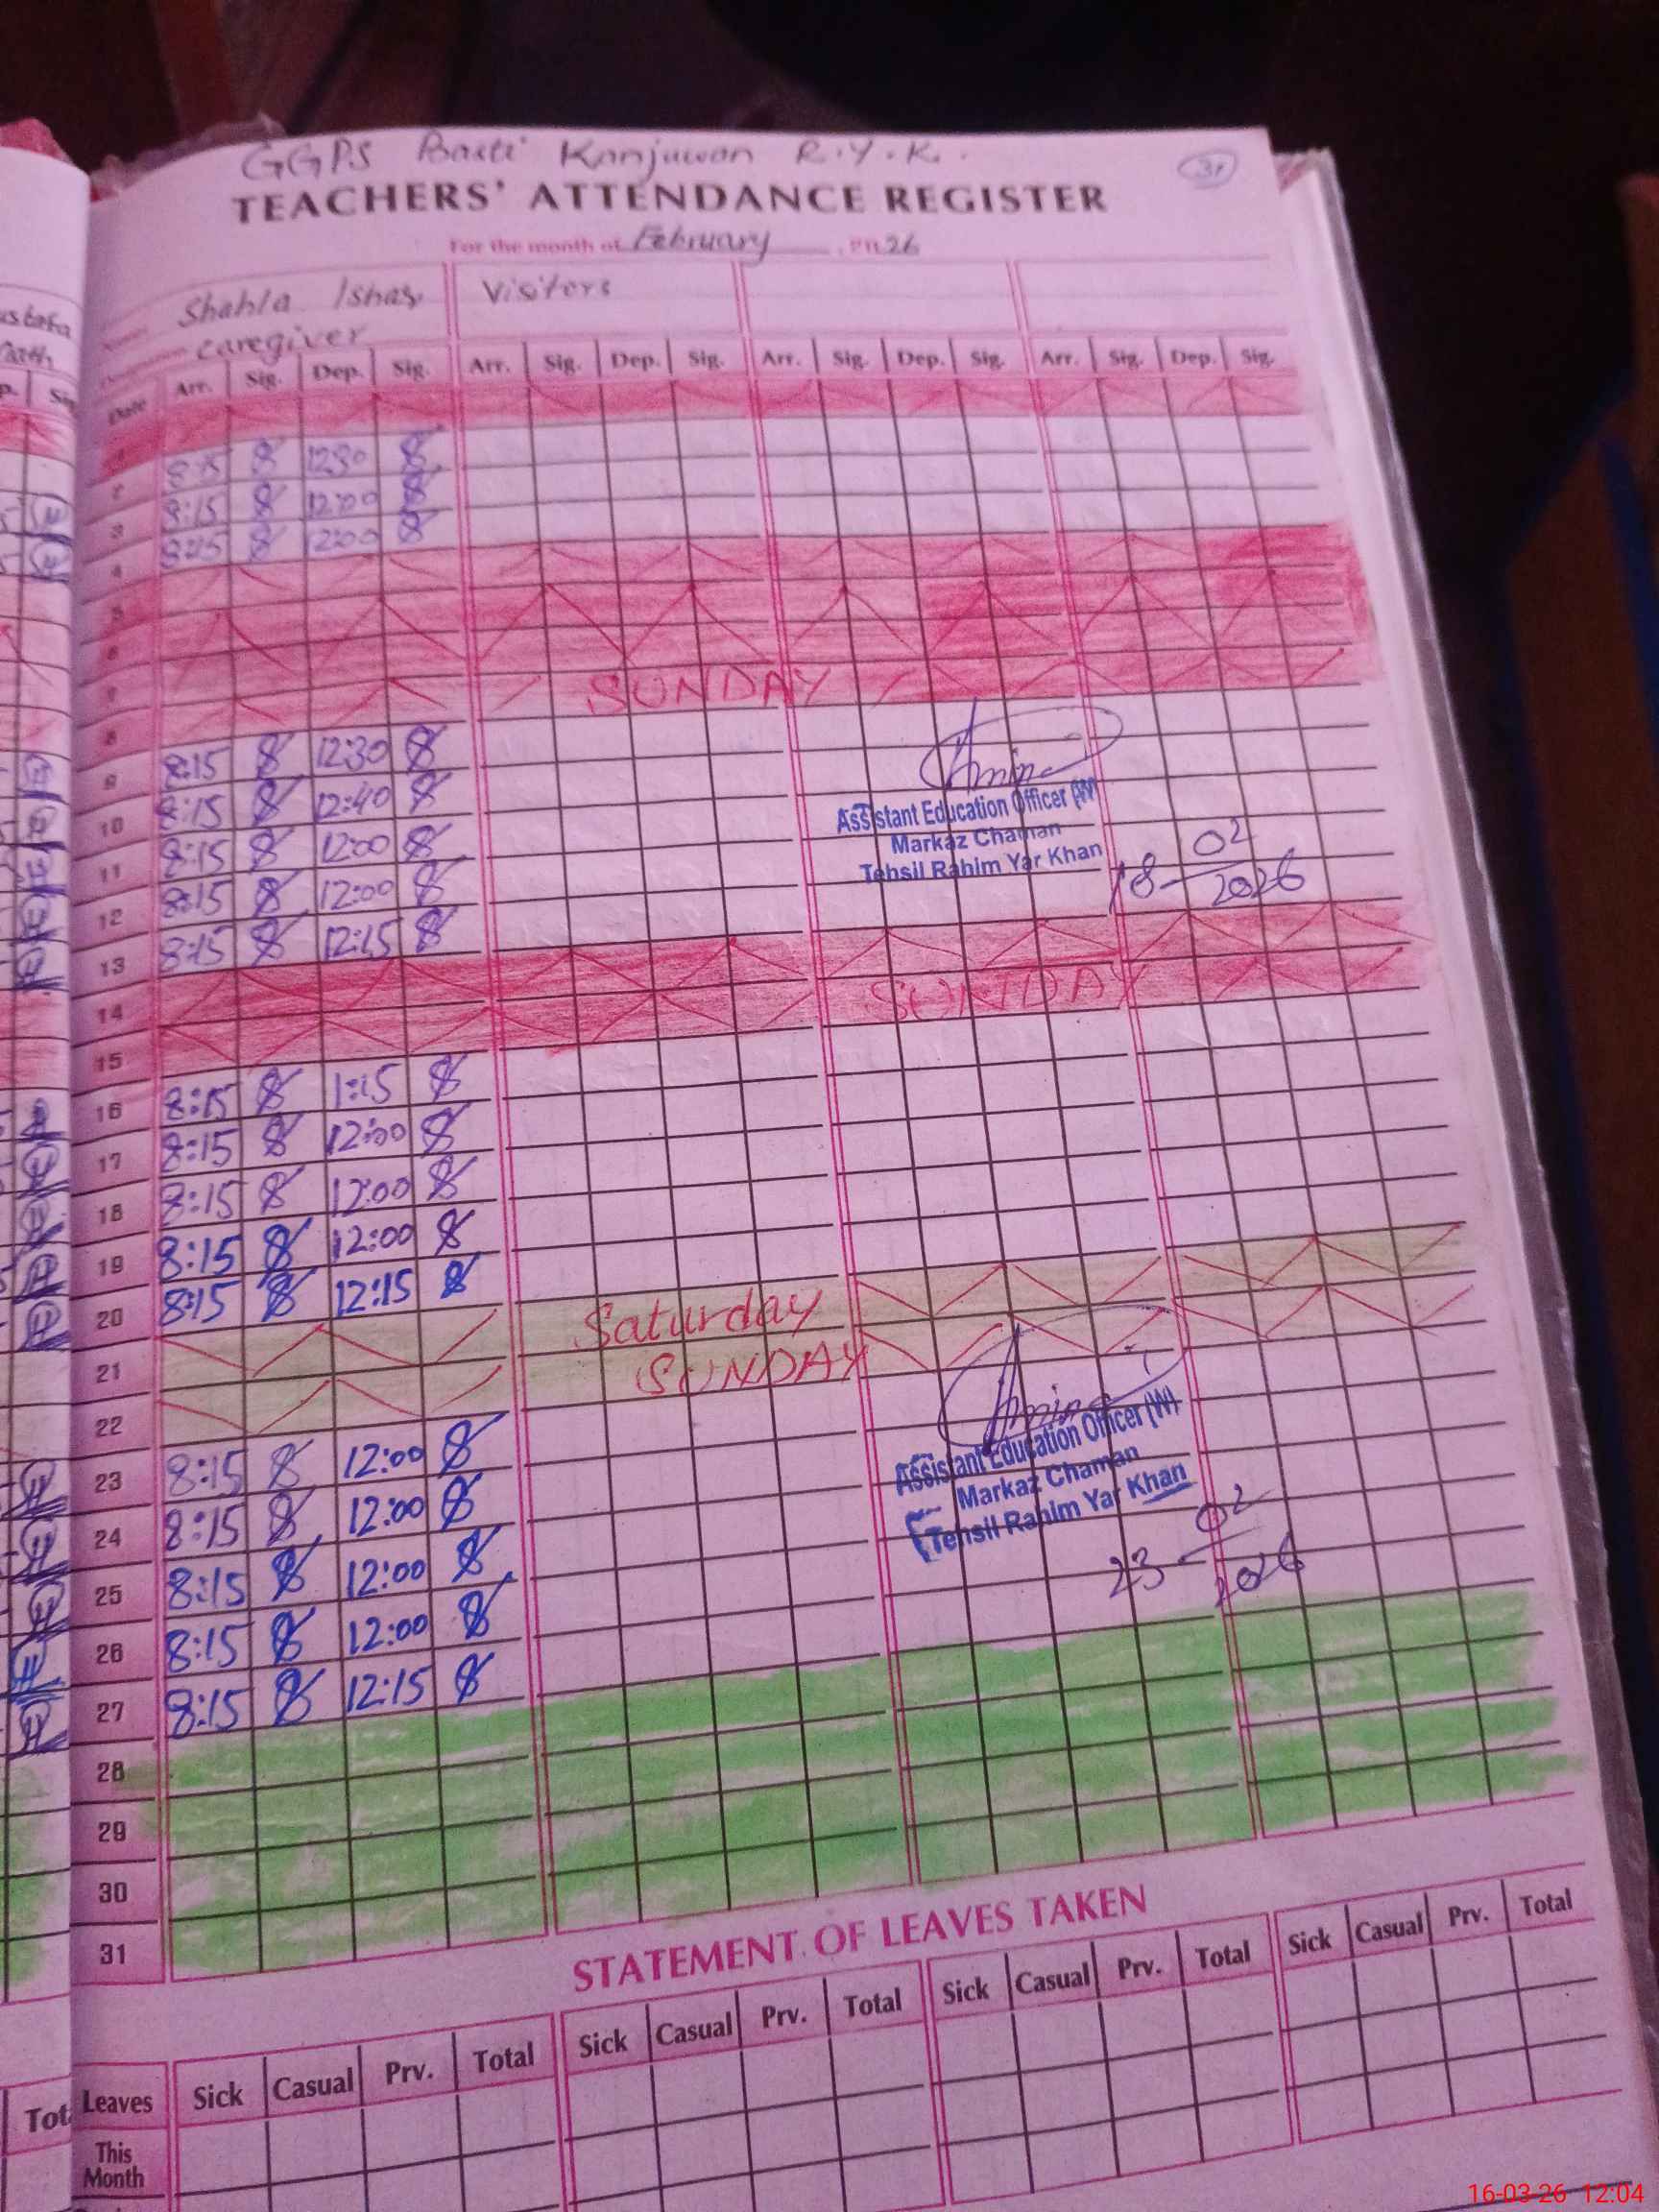 GGPS Basti Kanjuwan R.Y.K.
31
TEACHERS' ATTENDANCE REGISTER
For the month of February 26
Shahla Ishaq Visitors
caregiver
Date Arr. Sig. Dep. Sig. Arr. Sig. Dep. Sig. Arr. Sig. Dep. Sig. Arr. Sig. Dep. Sig.
1
2 8:15 12:30
3 8:15 12:00
4 8:15 12:00
5
6
7
8 SUNDAY
9 8:15 12:30
10 8:15 12:40
11 8:15 12:00
12 8:15 12:00
13 8:15 12:15
Amina
Assistant Education Officer (W)
Markaz Chaman
Tehsil Rahim Yar Khan
18-02
2026
14
15 SUNDAY
16 8:15 1:15
17 8:15 12:00
18 8:15 12:00
19 8:15 12:00
20 8:15 12:15
21 Saturday
22 SUNDAY
23 8:15 12:00
24 8:15 12:00
25 8:15 12:00
26 8:15 12:00
27 8:15 12:15
Amina
Assistant Education Officer (W)
Markaz Chaman
Tehsil Rahim Yar Khan
23-02
2026
28
29
30
31
STATEMENT OF LEAVES TAKEN
Leaves Sick Casual Prv. Total Sick Casual Prv. Total Sick Casual Prv. Total Sick Casual Prv. Total
This
Month
16-03-26 12:04